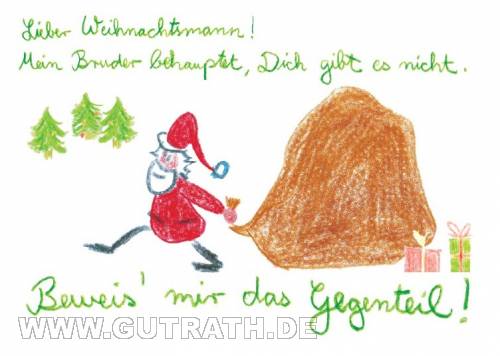 Lieber Weihnachtsmann!
Mein Bruder behauptet, Dich gibt es nicht.
Beweis' mir das Gegenteil!
WWW.GUTRATH.DE